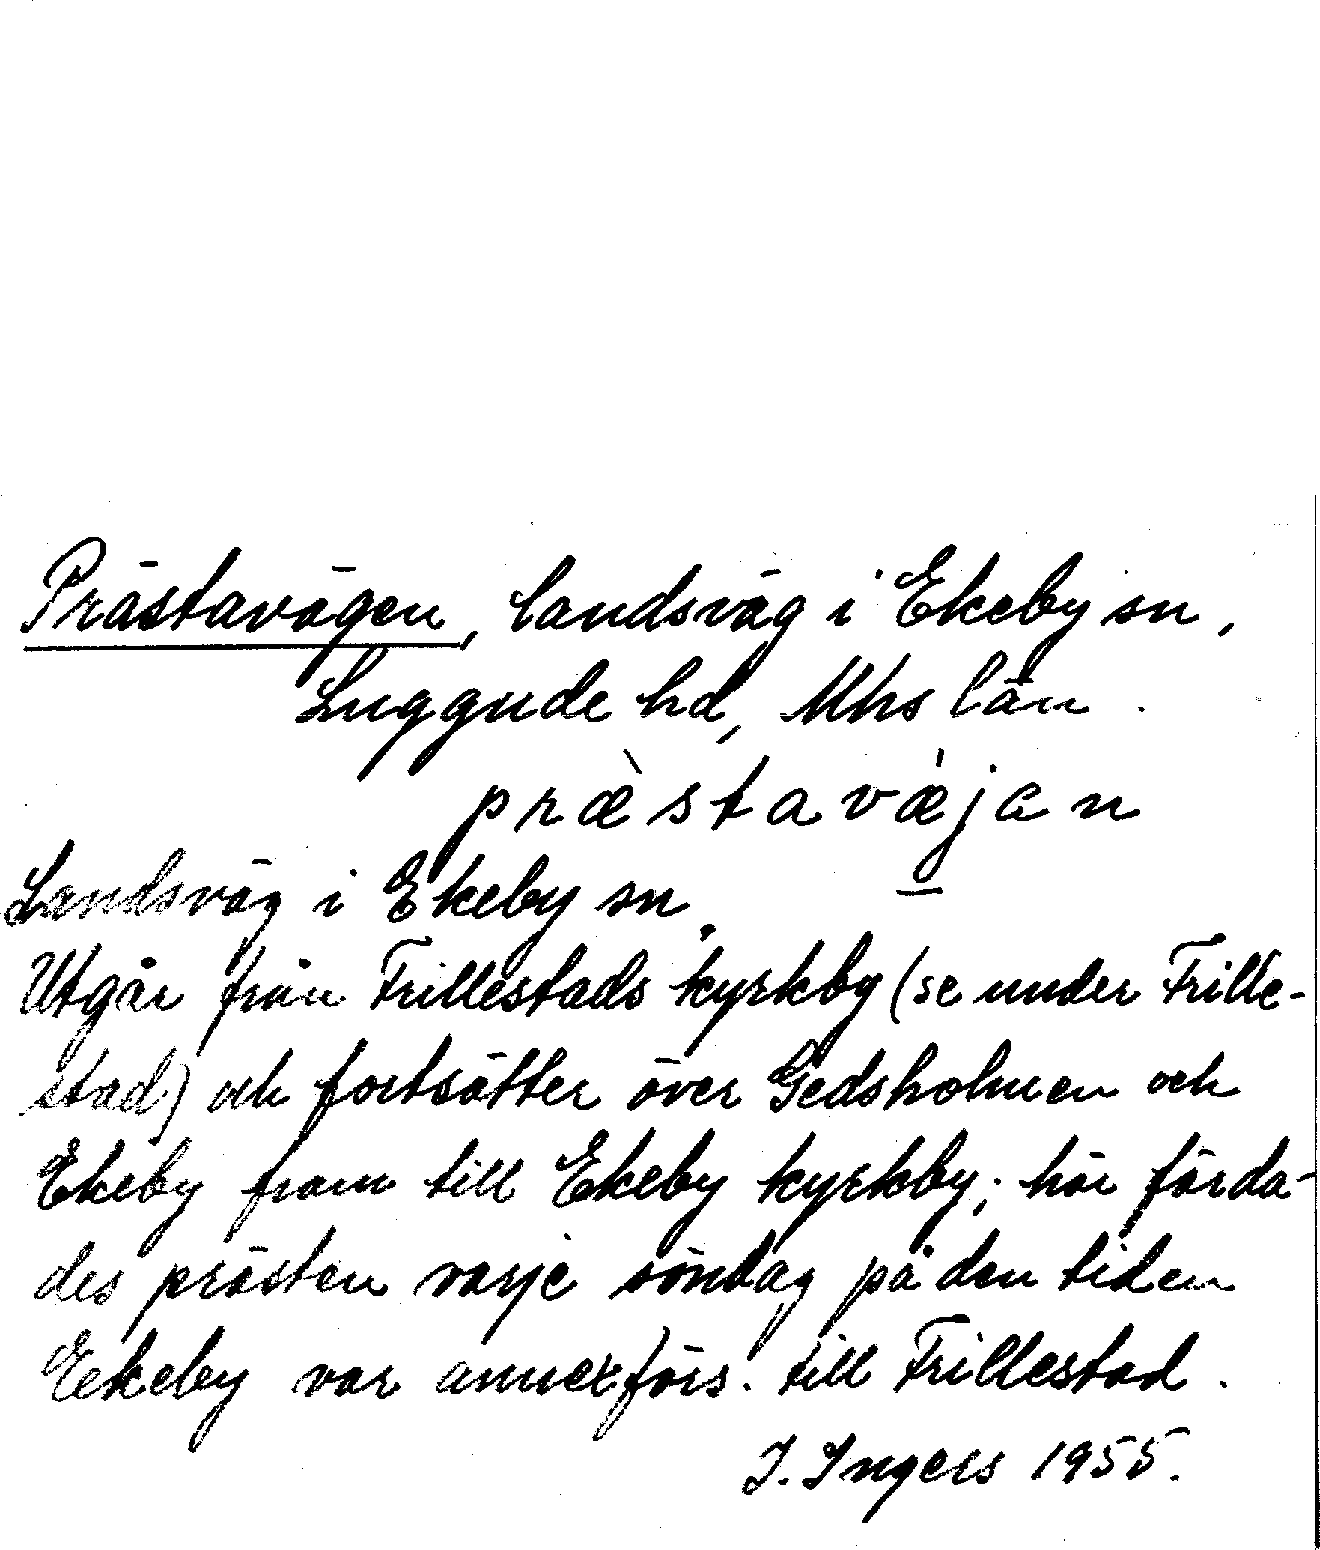 Prästavägen, landsväg i Ekeby sn,
Luggude hd, Mhs län.
præ̀stavæ̀jan
Landsväg i Ekeby sn.
Utgår från Frillestads kyrkby (se under Frille-
stad) och fortsätter över Gedsholmen och
Ekeby fram till Ekeby kyrkby; här färda-
des prästen varje söndag på den tiden
Ekeby var annexförs. till Frillestad.
I. Ingers 1955.